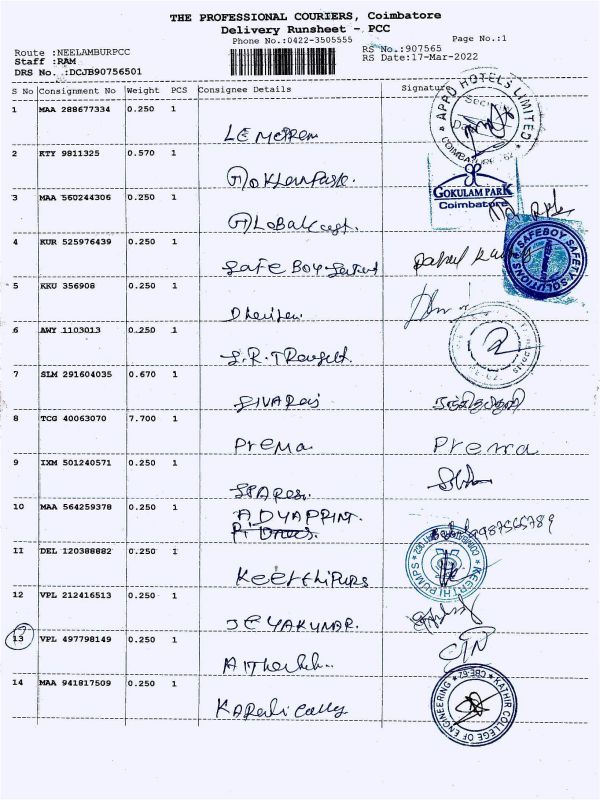 THE PROFESSIONAL COURIERS, Coimbatore
Delivery Runsheet - PCC
Phone No.:0422-3505555
Page No.:1
Route :NEELAMBURPCC
RS No.:907565
Staff :RAM
RS Date:17-Mar-2022
DRS No. :DCJB90756501
S No Consignment No Weight PCS Consignee Details Signature
APPU HOTELS LIMITED
Security
COIMBATORE
1 MAA 288677334 0.250 1
2 KTY 9811325 0.570 1
GOKULAM PARK
Coimbatore
3 MAA 560244306 0.250 1
4 KUR 525976439 0.250 1
Safe Boy
SAFEBOY SAFETY SOLUTIONS
5 KKU 356908 0.250 1
6 AWY 1103013 0.250 1
S.R.T
7 SLM 291604035 0.670 1
SIVARaj
8 TCG 40063070 7.700 1
Prema Prema
9 IXM 501240571 0.250 1
10 MAA 564259378 0.250 1
ADYAPRINT.
11 DEL 120388882 0.250 1
KEERTHI PUMPS
12 VPL 212416513 0.250 1
JEYAKUMAR.
13 VPL 497798149 0.250 1
14 MAA 941817509 0.250 1
KATHIR COLLEGE OF ENGINEERING
CBE-62